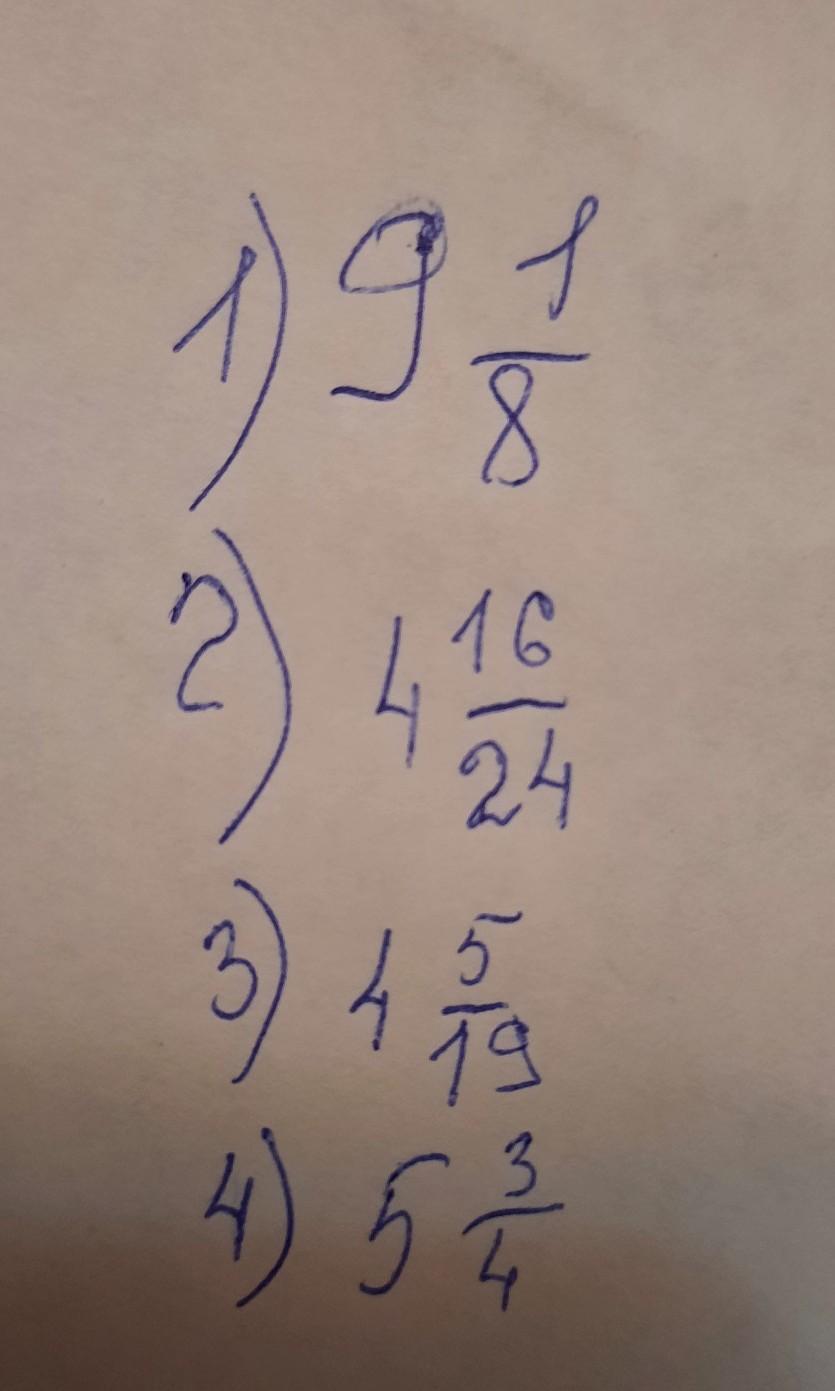 1) 9 1/8
2) 4 16/24
3) 4 5/19
4) 5 3/4